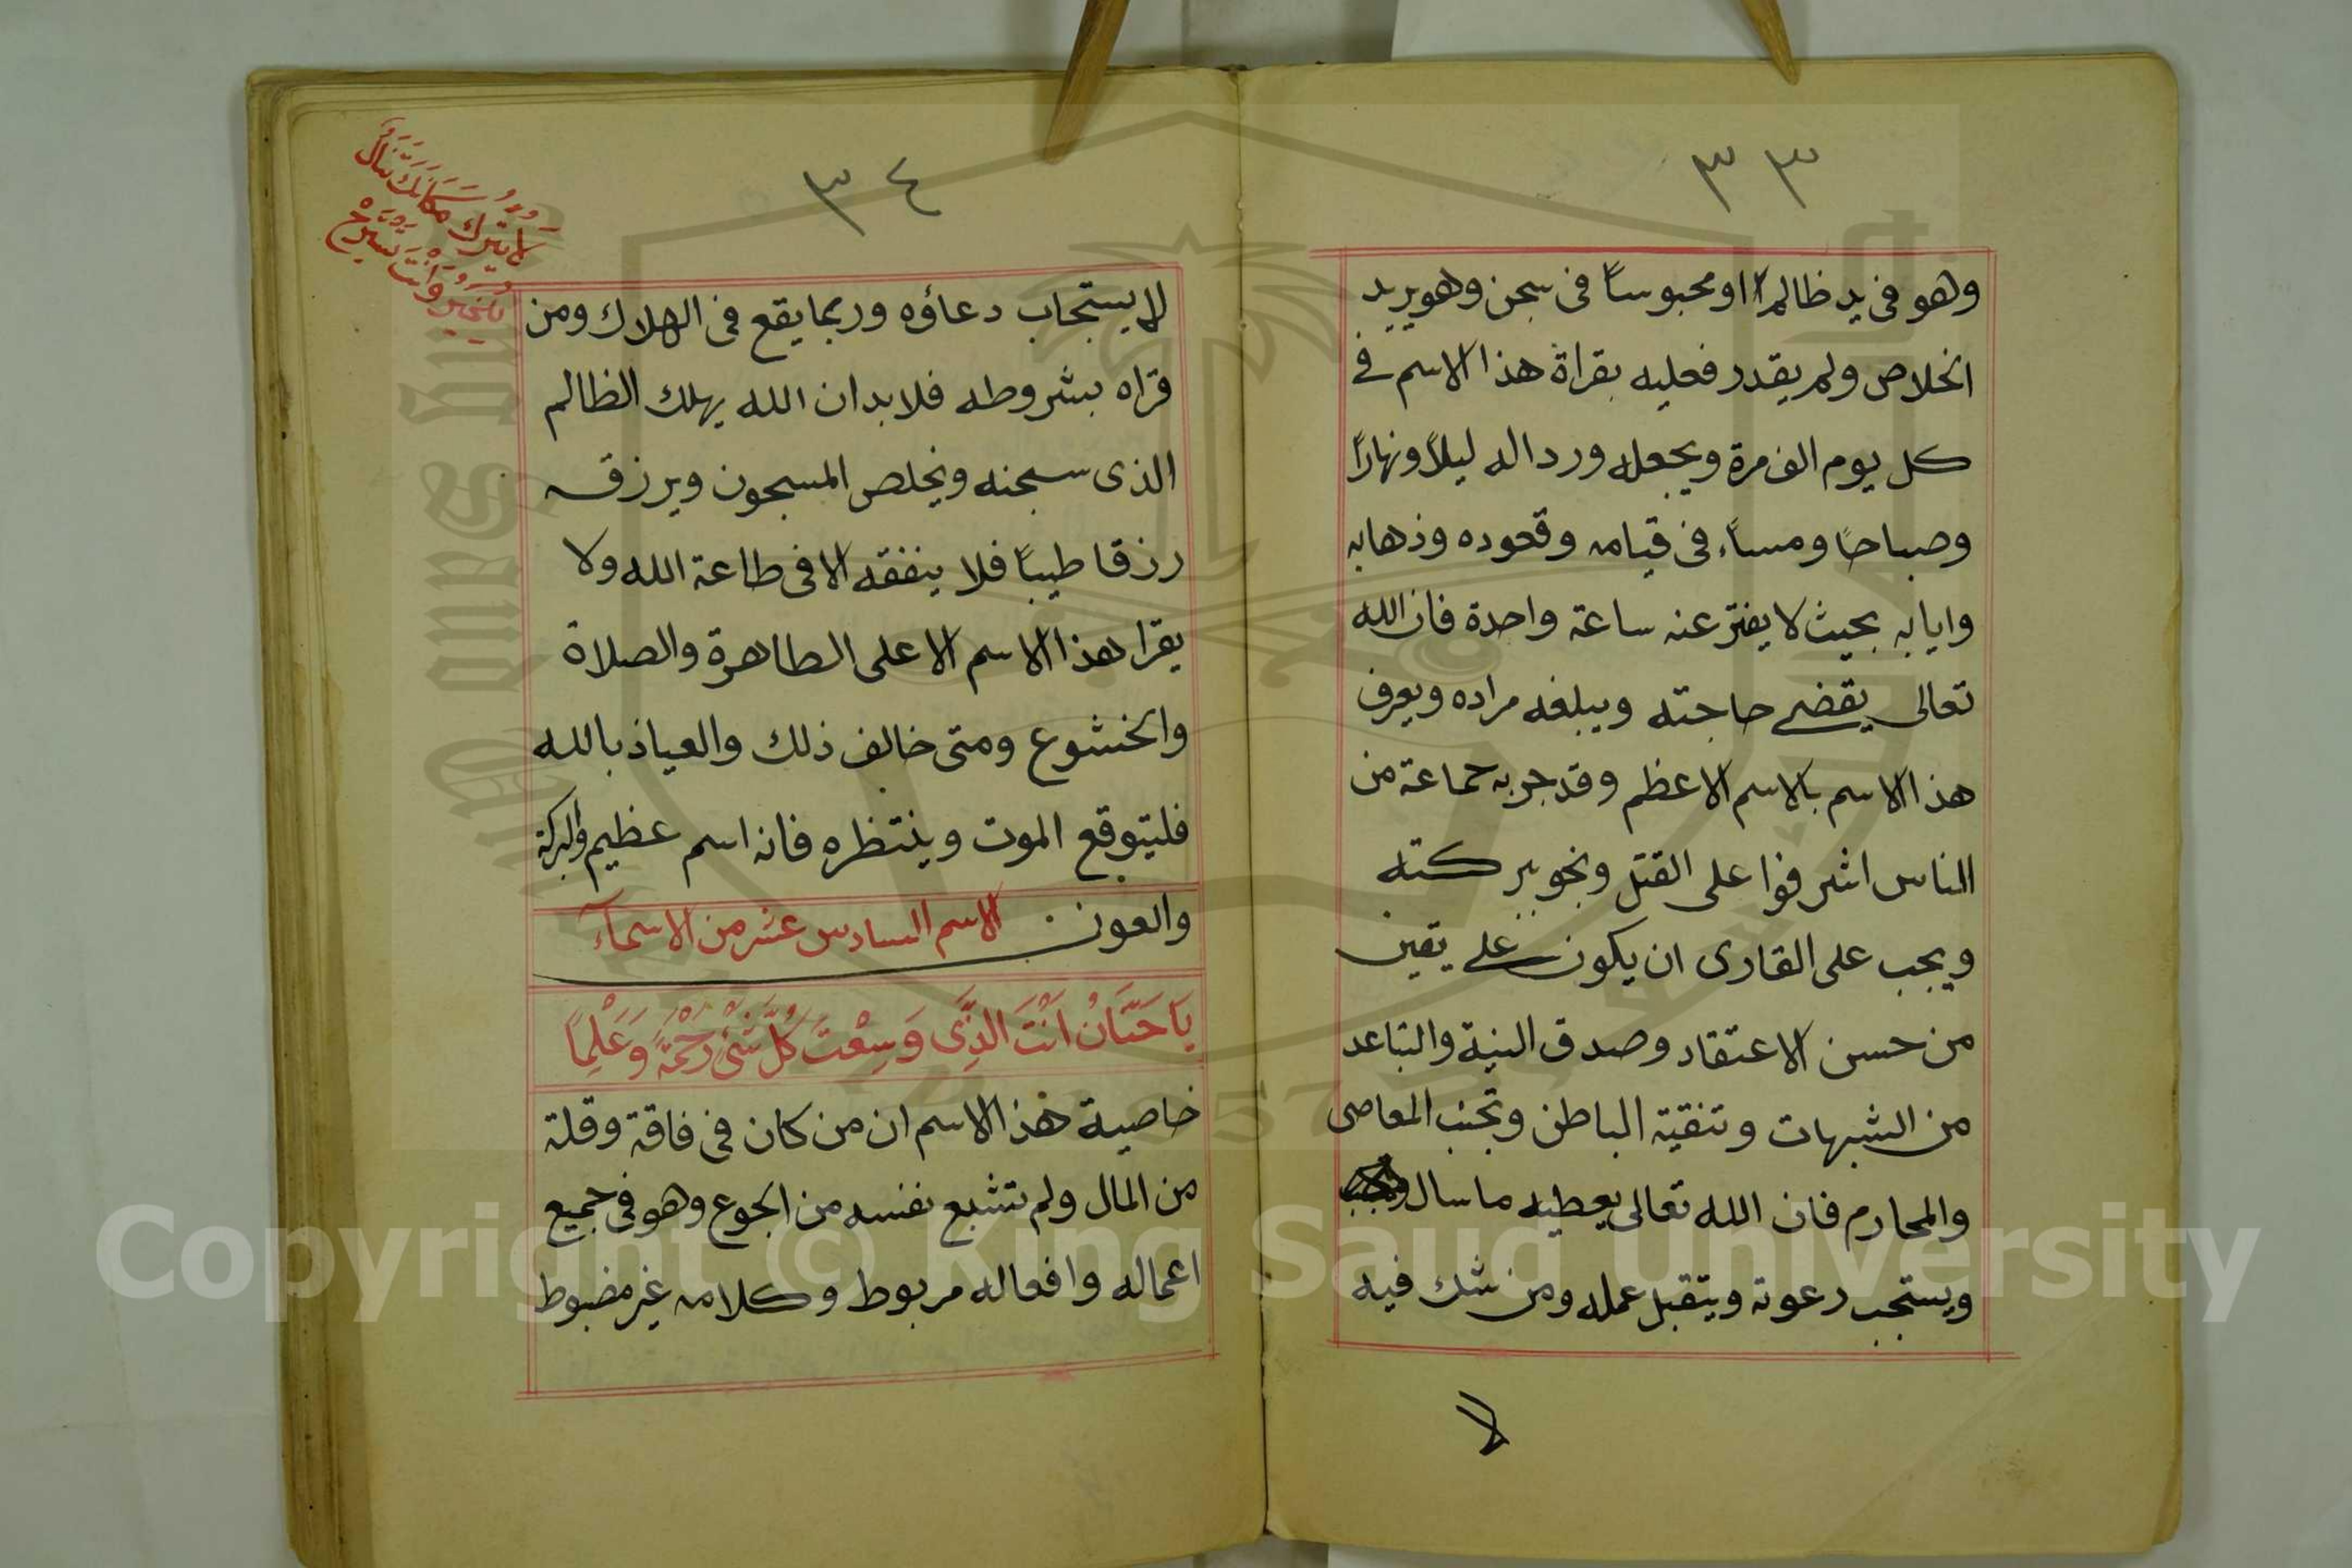 ٣٣
وهو فى يد ظالم او محبوساً فى سجن وهو يريد
الخلاص ولم يقدر فعليه بقراة هذا الاسم فى
كل يوم الف مرة ويجعله ورد اله ليلاً ونهاراً
وصباحاً ومساء فى قيامه وقعوده وذهابه
وايابه بحيث لا يفتر عنه ساعة واحدة فان الله
تعالى يقضى حاجته ويبلغه مراده ويعرف
هذا الاسم بالاسم الاعظم وقد جربه جماعة من
الناس اشرفوا على القتل ونجو ببركته
ويجب على القارى ان يكون على يقين
من حسن الاعتقاد وصدق النية والتباعد
من الشبهات وتنقية الباطن وتجنب المعاصى
والمحارم فان الله تعالى يعطيه ما سال
ويستجب دعوته ويتقبل عمله ومن شك فيه
لا
٣٤
لا يترك مكانك تنال
بالخير وانت تستريح
لا يستجاب دعاؤه وربما يقع فى الهلاك ومن
قراه بشروطه فلابد ان الله يهلك الظالم
الذى سجنه ويخلص المسجون ويرزقه
رزقا طيباً فلا ينفقه الا فى طاعة الله ولا
يقرا هذا الاسم الا على الطاهرة والصلاة
والخشوع ومتى خالف ذلك والعياذ بالله
فليتوقع الموت وينتظره فانه اسم عظيم والبركة
والعون الاسم السادس عشر من الاسمآء
يَا حَنَّانُ اَنْتَ الَّذِى وَسِعْتَ كُلَّ شَىْءٍ رَحْمَةً وَعِلْمًا
خاصية هذا الاسم ان من كان فى فاقة وقلة
من المال ولم تشبع نفسه من الجوع وهو فى جميع
اعماله وافعاله مربوط وكلامه غير مضبوط
Copyright © King Saud University